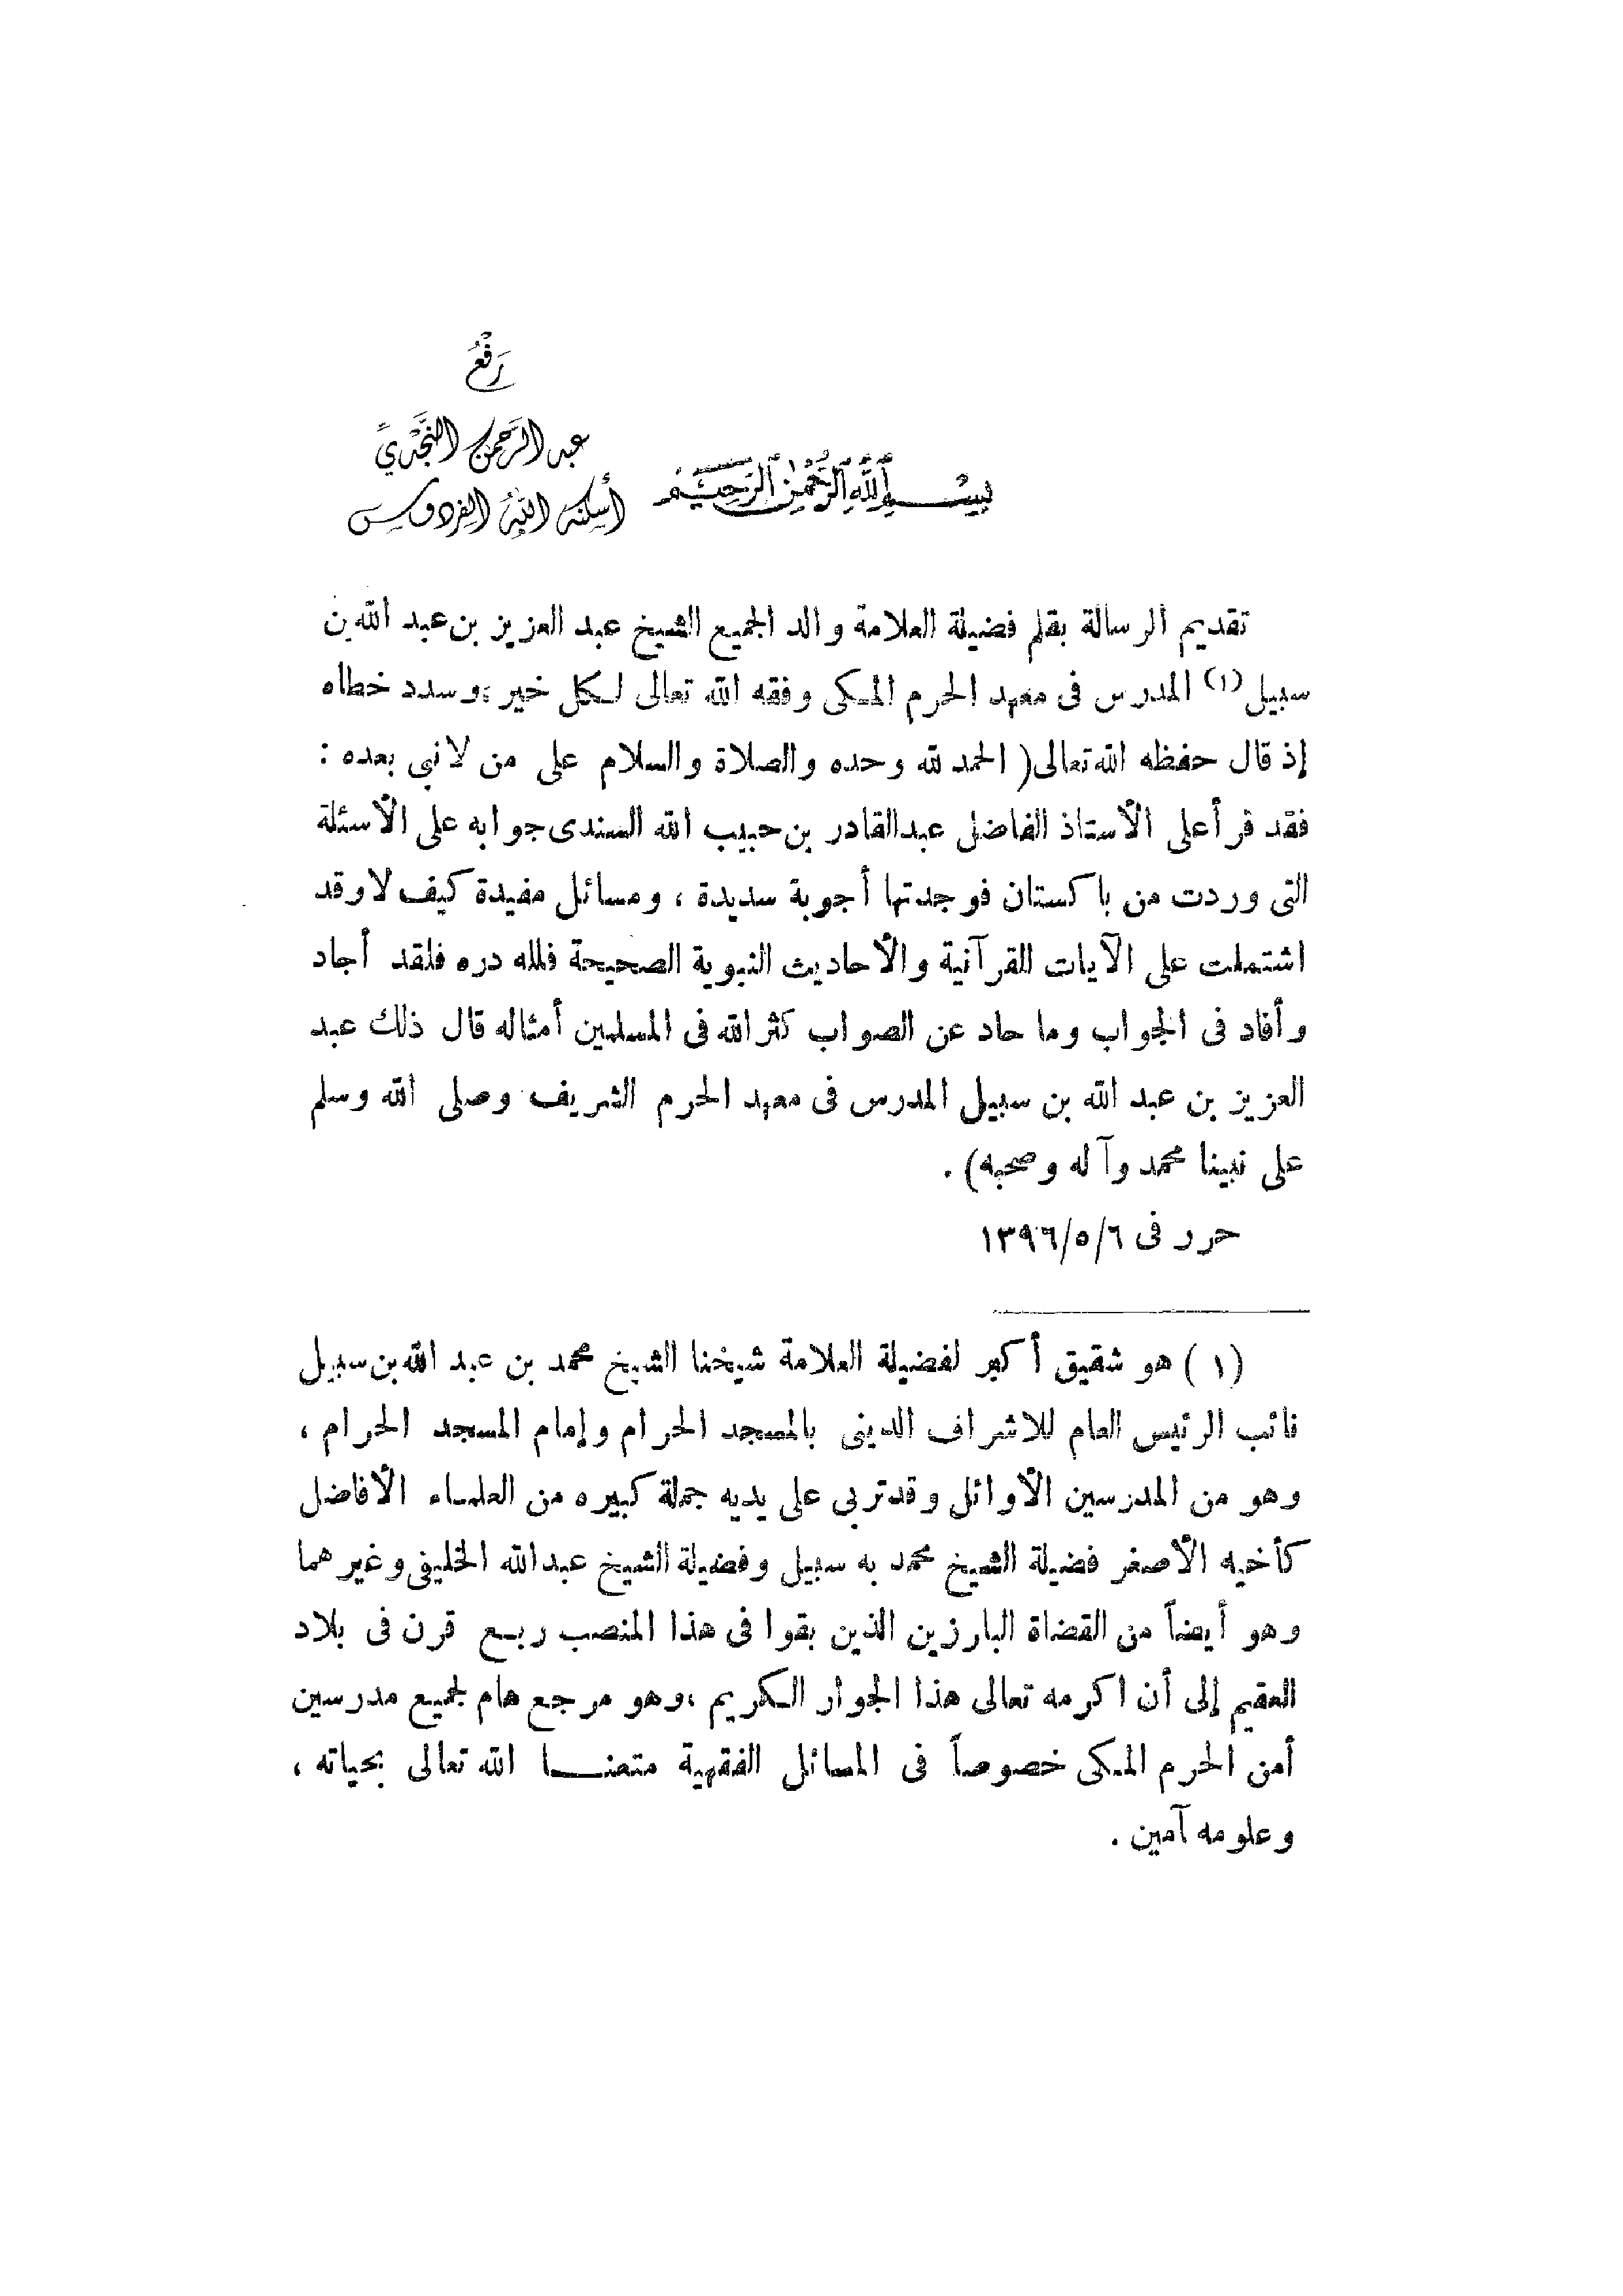 رَفْعُ
عبد الرَّحمن النَّجْدِيِّ
أسكنه اللّٰه الفردوس
بِسْمِ اللَّهِ الرَّحْمٰنِ الرَّحِيْمِ
تقديم الرسالة بقلم فضيلة العلامة والد الجميع الشيخ عبد العزيز بن عبد الله بن
سبيل (١) المدرس فى معهد الحرم المكى وفقه الله تعالى لكل خير ، وسدد خطاه
إذ قال حفظه الله تعالى ( الحمد لله وحده والصلاة والسلام على من لا نبى بعده :
فقد قرأ على الأستاذ الفاضل عبد القادر بن حبيب الله السندى جوابه على الأسئلة
التى وردت من باكستان فوجدتها أجوبة سديدة ، ومسائل مفيدة كيف لا وقد
اشتملت على الآيات القرآنية والأحاديث النبوية الصحيحة فلله دره فلقد أجاد
وأفاد فى الجواب وما حاد عن الصواب كثر الله فى المسلمين أمثاله قال ذلك عبد
العزيز بن عبد الله بن سبيل المدرس فى معهد الحرم الشريف وصلى الله وسلم
على نبينا محمد وآله وصحبه ) .
حرر فى ١٣٩٦/٥/٦
( ١ ) هو شقيق أكبر لفضيلة العلامة شيخنا الشيخ محمد بن عبد الله بن سبيل
نائب الرئيس العام للاشراف الدينى بالمسجد الحرام وإمام المسجد الحرام ،
وهو من المدرسين الأوائل وقد تربى على يديه جملة كبيره من العلماء الأفاضل
كأخيه الأصغر فضيلة الشيخ محمد به سبيل وفضيلة الشيخ عبد الله الخليفى وغيرهما
وهو أيضاً من القضاة البارزين الذين بقوا فى هذا المنصب ربع قرن فى بلاد
العقيم إلى أن اكرمه تعالى هذا الجوار الكريم ، وهو مرجع هام لجميع مدرسين
أمن الحرم المكى خصوصاً فى المسائل الفقهية متعنا الله تعالى بحياته ،
وعلومه آمين .